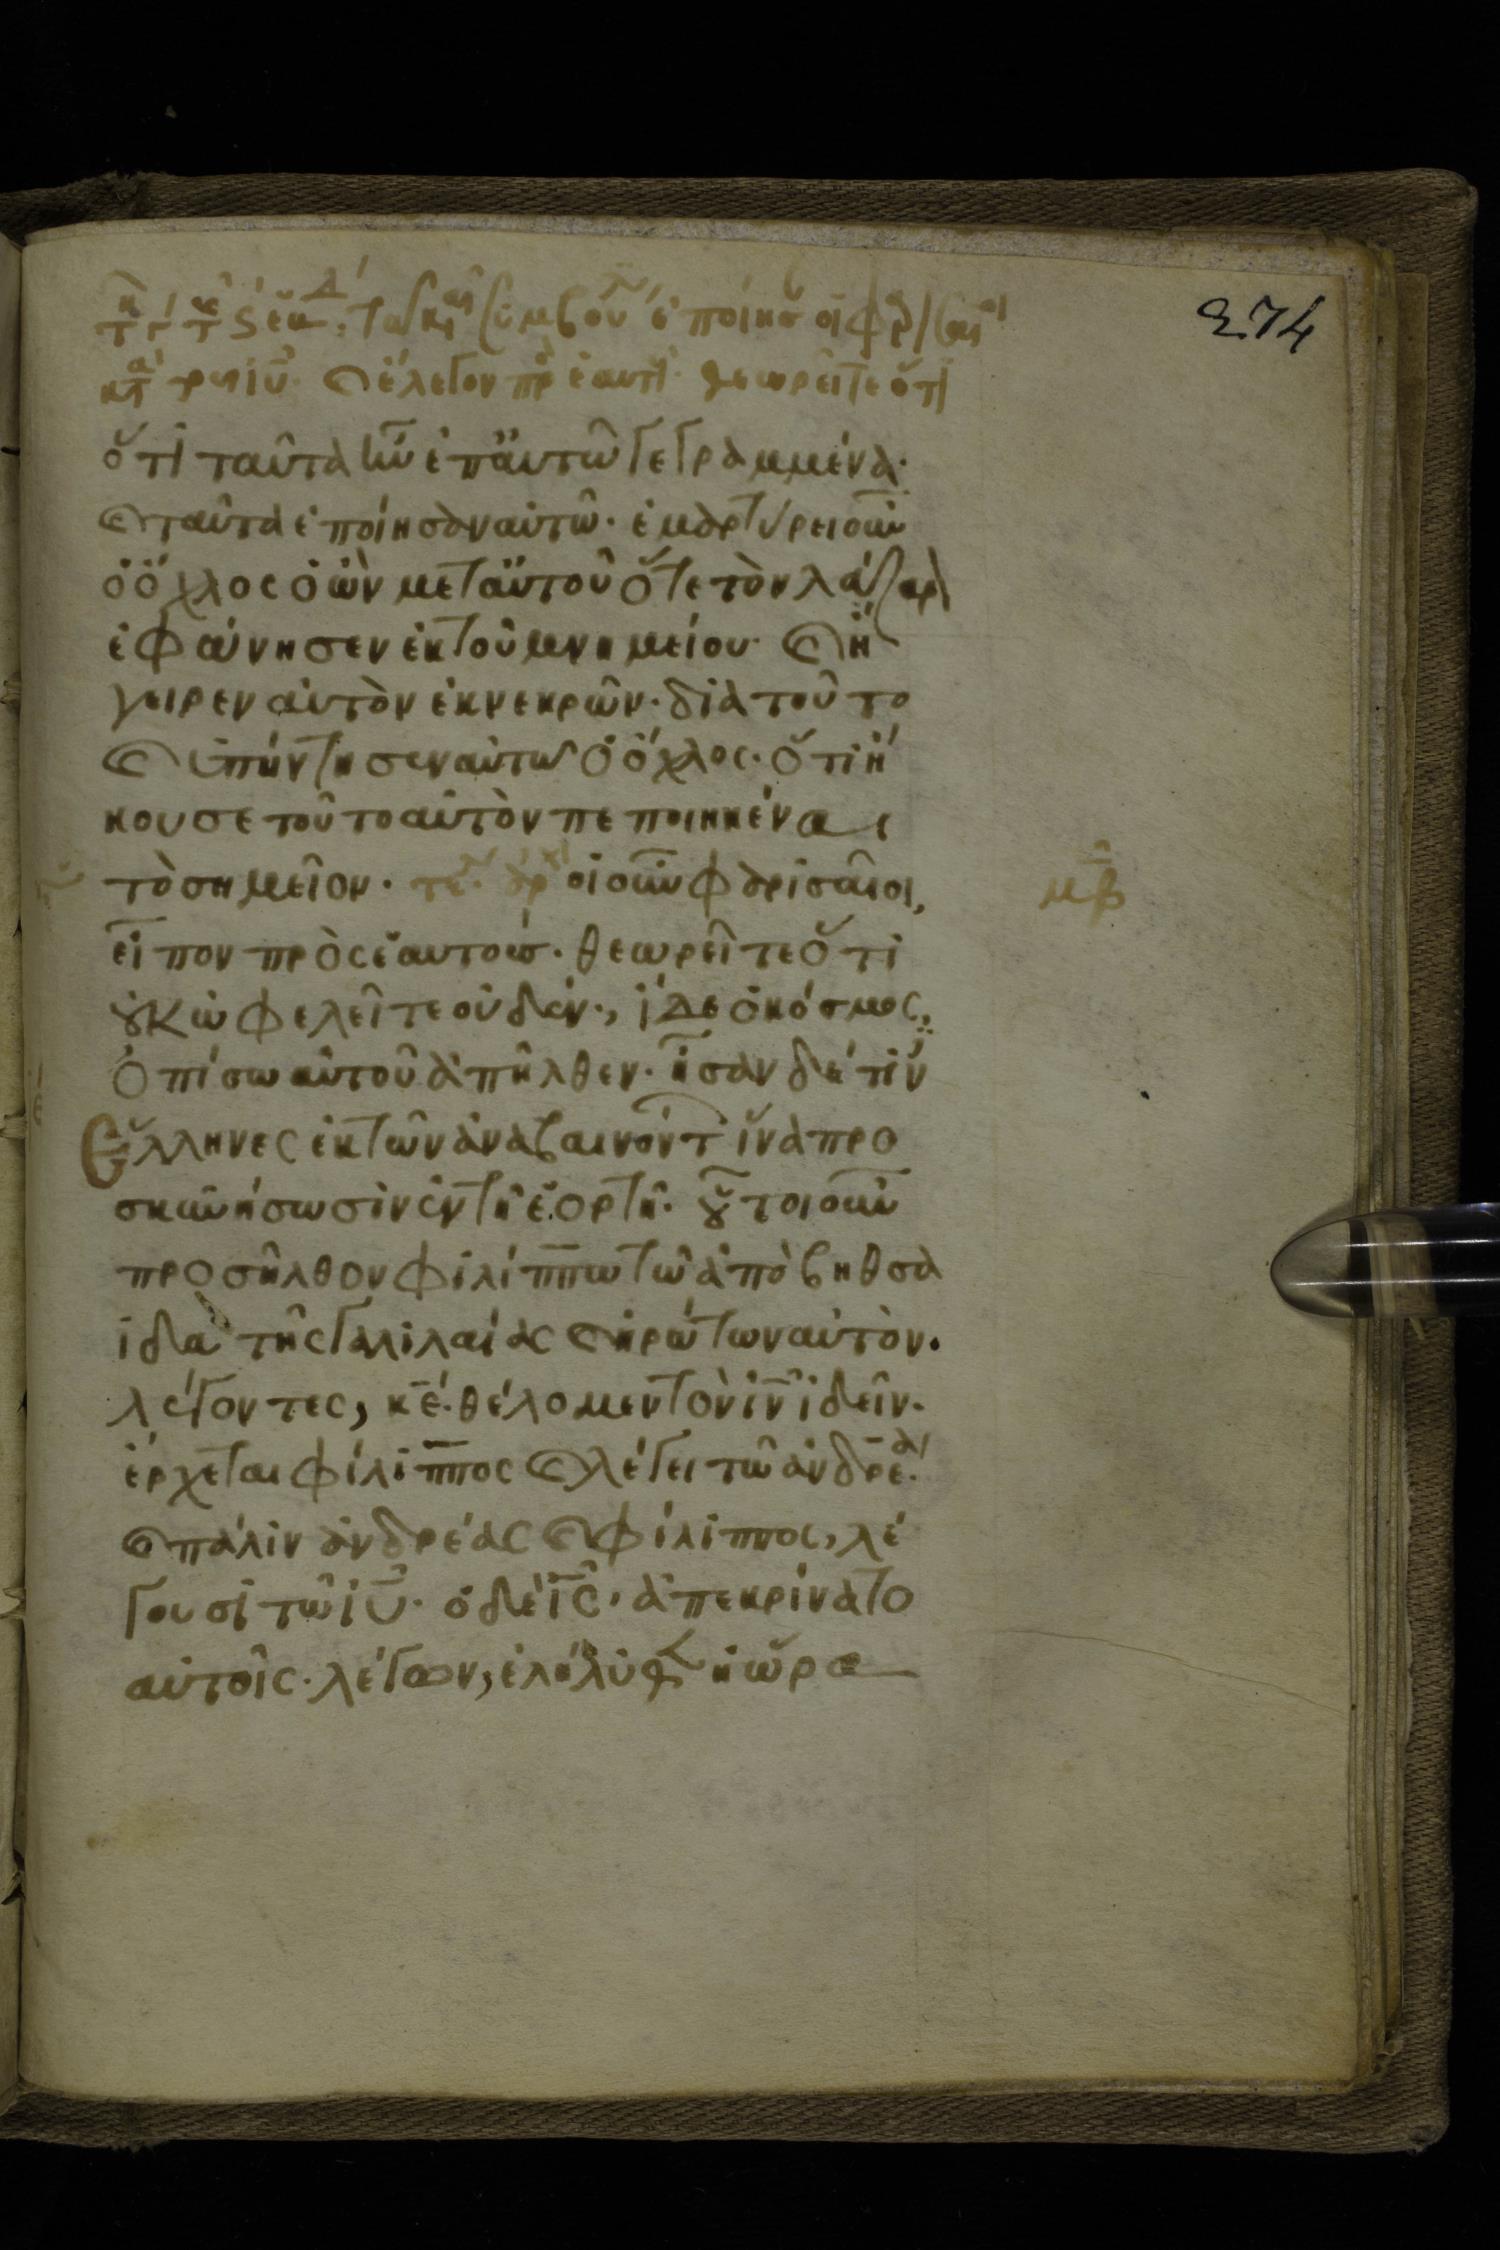 274
συμβου ἐποίησ οἱ φαρ
ἔλεγον πρ ἑαυτ θεωρεῖτε ὅτι
ὅτι ταῦτα ἦν ἐπ αὐτῶ γεγραμμένα·
κ ταῦτα ἐποίησαν αὐτῶ· ἐμαρτύρει οὖν
ὁ ὄχλος ὁ ὢν μετ αὐτοῦ ὅτε τὸν λάζαρ
ἐφώνησεν ἐκ τοῦ μνημείου· κ ἤ
γειρεν αὐτὸν ἐκ νεκρῶν· διὰ τοῦτο
κ ὑπήντησεν αὐτῶ ὁ ὄχλος· ὅτι ἤ
κουσε τοῦτο αὐτὸν πεποιηκέναι
τὸ σημεῖον· τε· ἀρχ οἱ οὖν φαρισαῖοι,
μβ
εἶπον πρὸς ἑαυτούς· θεωρεῖτε ὅτι
οὐκ ὠφελεῖτε οὐδέν·, ἴδε ὁ κόσμος,
ὀπίσω αὐτοῦ ἀπῆλθεν· ἦσαν δέ τιν
Ἕλληνες ἐκ τῶν ἀναβαινόντ ἵνα προ
σκυνήσωσιν ἐν τῆ ἑορτῆ· οὗτοι οὖν
προσῆλθον φιλίππω τῶ ἀπὸ βηθσα
ϊδὰ τῆς γαλιλαίας κ ἠρώτων αὐτὸν·
λέγοντες, κε· θέλομεν τὸν ιν ἰδεῖν·
ἔρχεται φίλιππος κ λέγει τῶ ἀνδρέα·
κ πάλιν ἀνδρέας κ φίλιππος, λέ
γουσι τῶ ιυ· ὁ δὲ ις, ἀπεκρίνατο
αὐτοῖς· λέγων, ἐλήλυθεν ἡ ὥρα